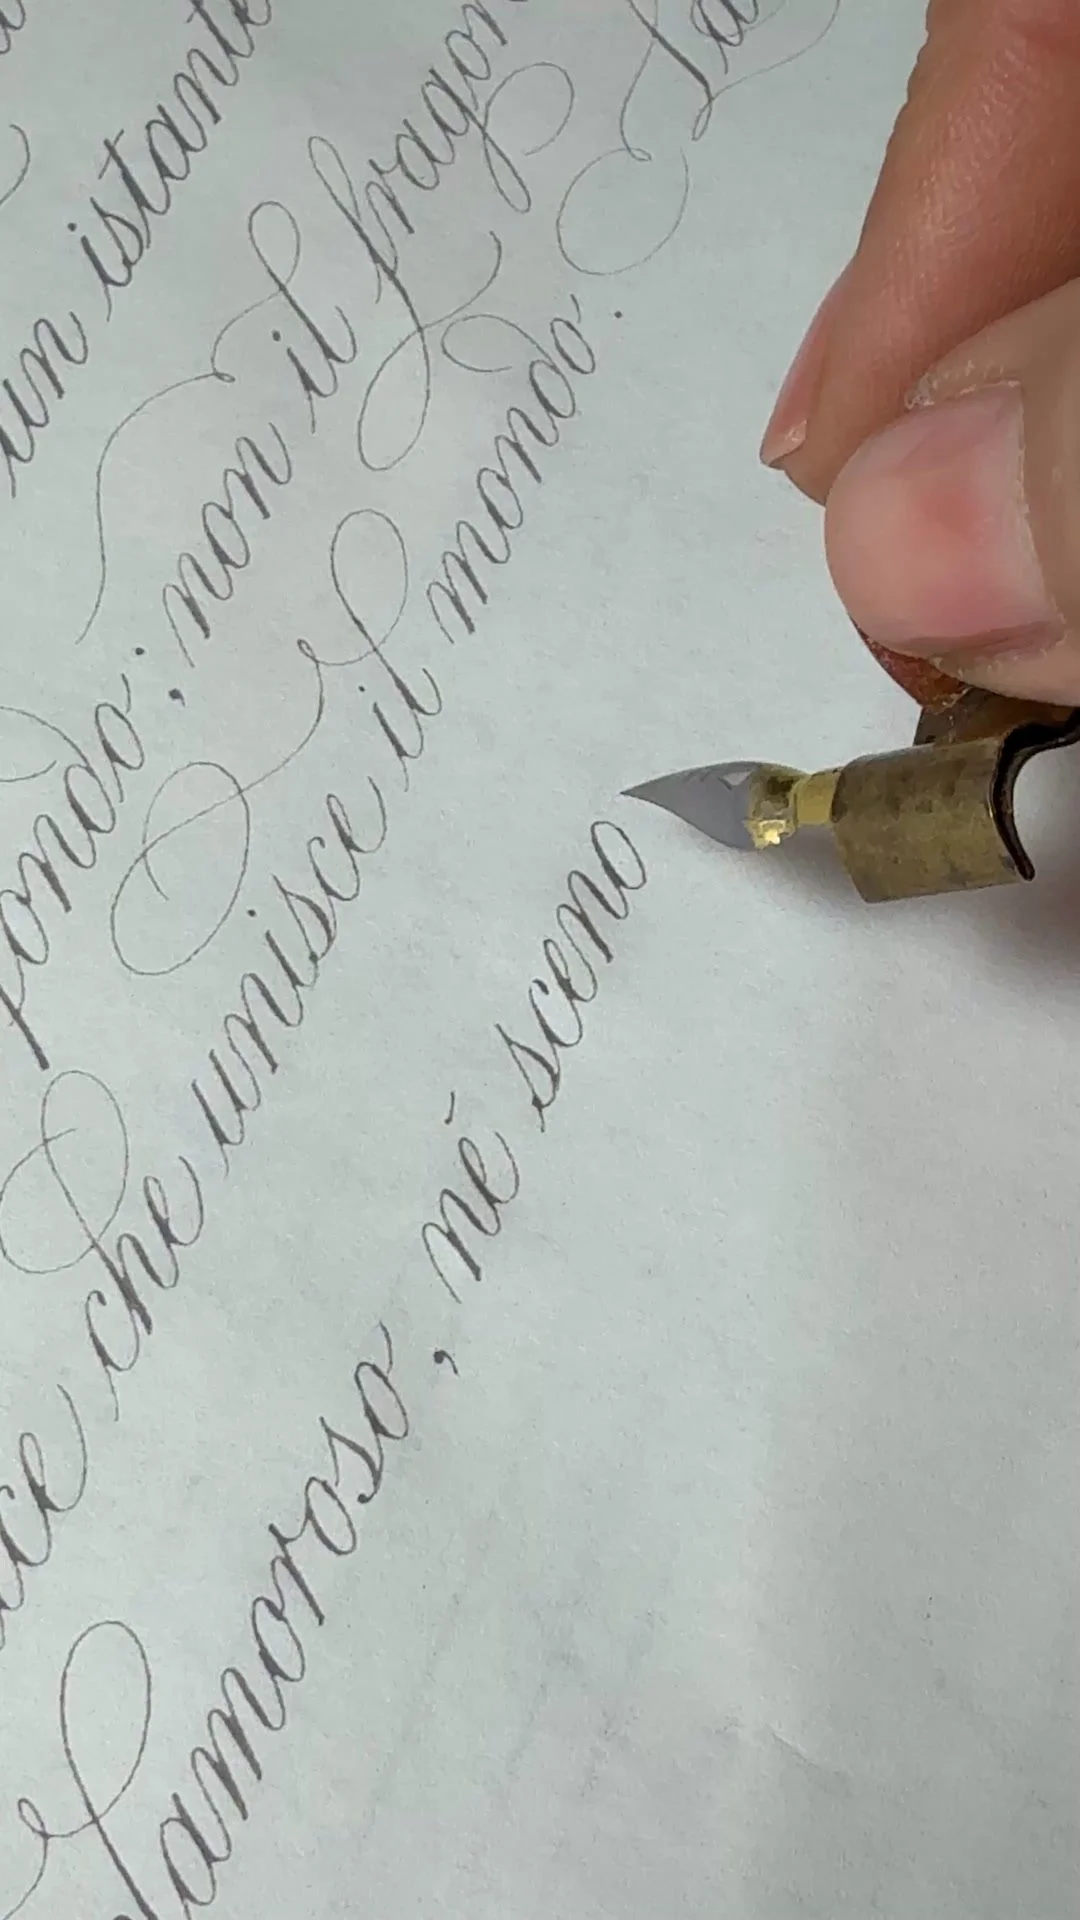 un istante
fondo; non il fragor
ce che unisce il mondo. La
lamoroso, né sceno